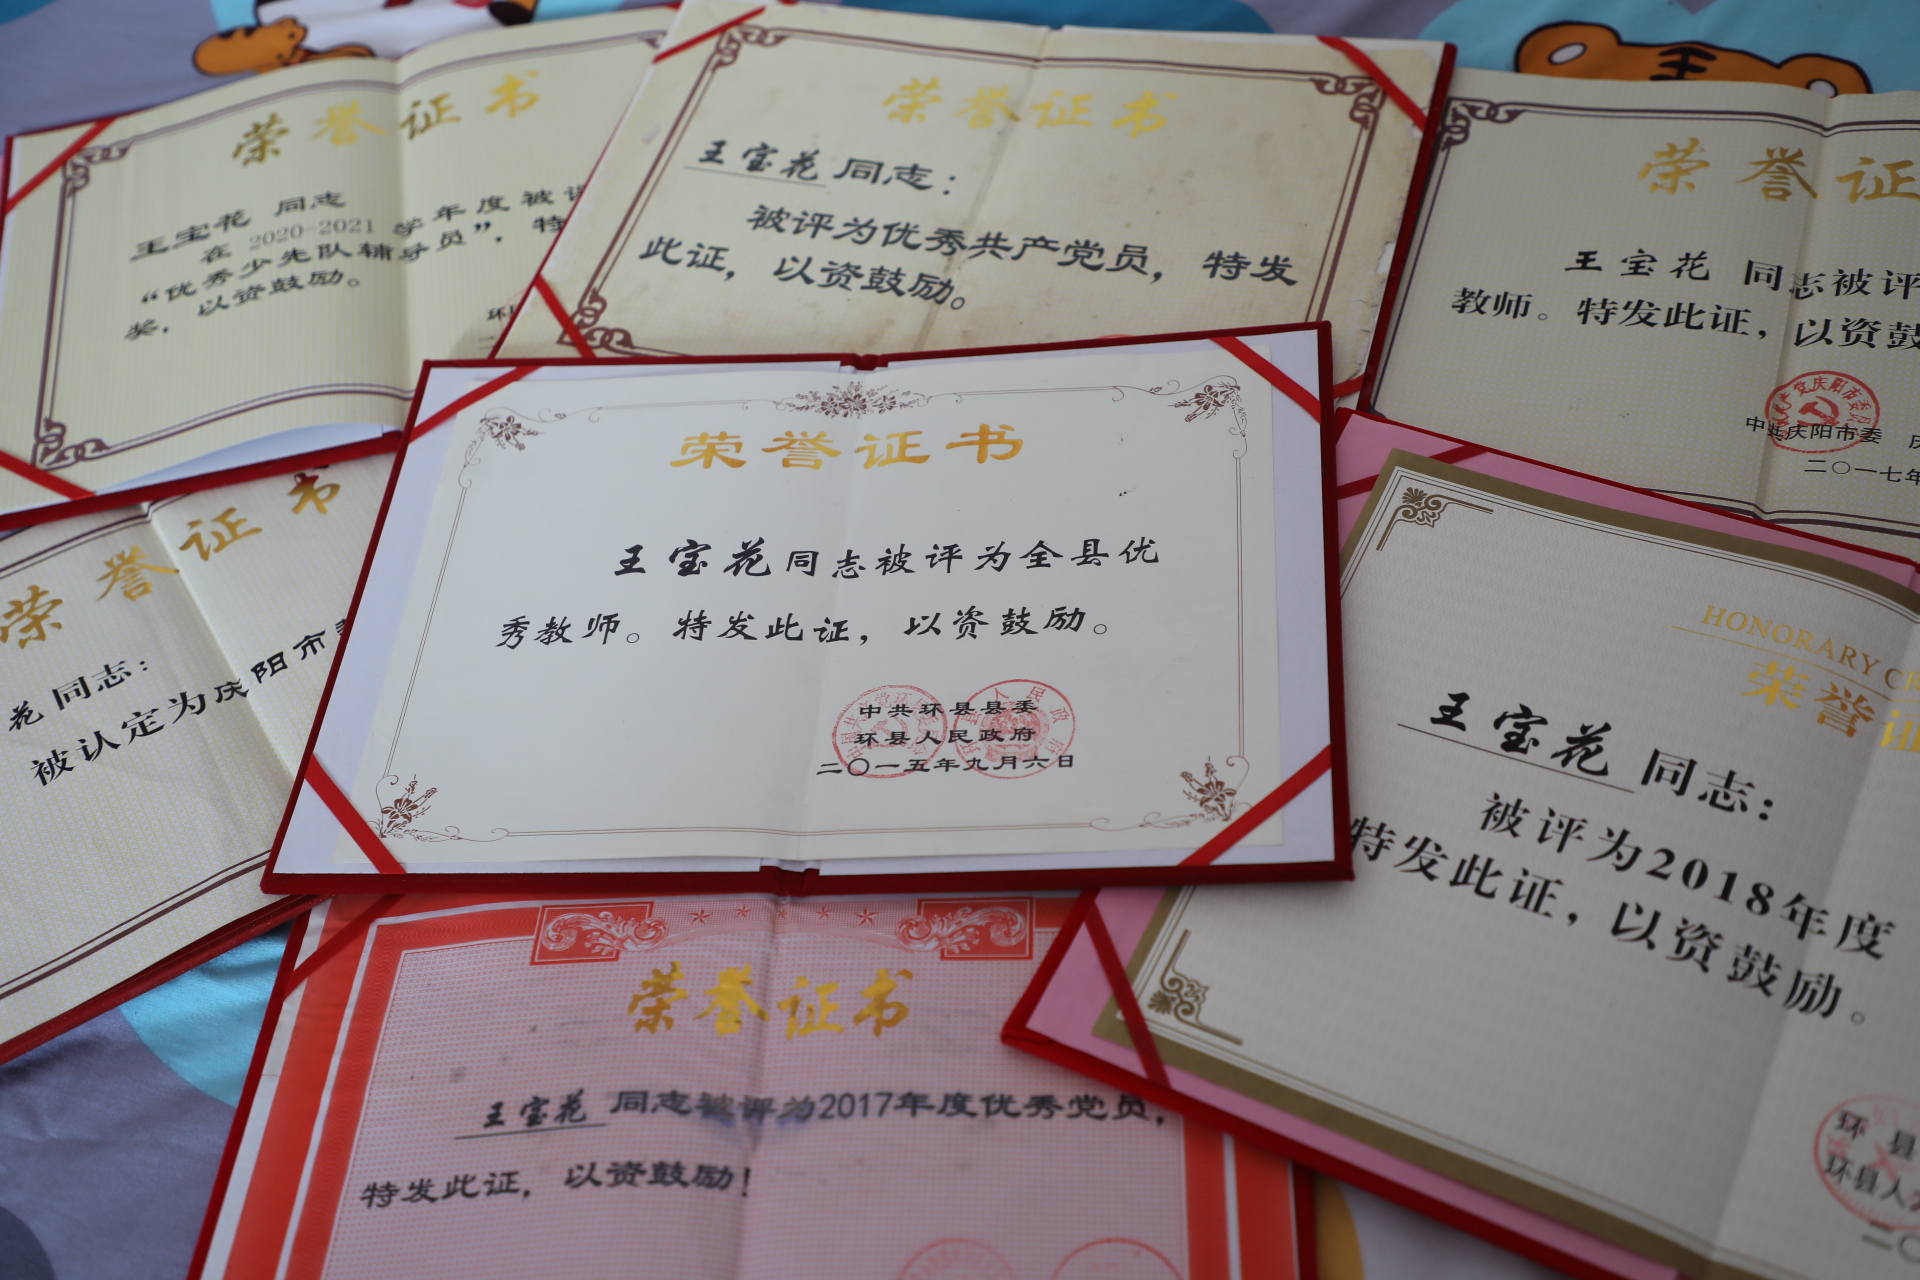 荣誉证书
王宝花 同志
在 2020-2021 学年度被评
“优秀少先队辅导员”，特
奖，以资鼓励。
环
荣誉证书
王宝花 同志：
被评为优秀共产党员，特发
此证，以资鼓励。
王
荣誉证
王宝花 同志被评
教师。特发此证，以资鼓
中共庆阳市委
二〇一七年
荣誉证书
花 同志：
被认定为庆阳市
荣誉证书
王宝花同志被评为全县优
秀教师。特发此证，以资鼓励。
中共环县县委
环县人民政府
二〇一五年九月六日
HONORARY C
荣誉证
王宝花 同志：
被评为2018年度
特发此证，以资鼓励。
环县
环县人
二〇
荣誉证书
王宝花 同志被评为2017年度优秀党员，
特发此证，以资鼓励！